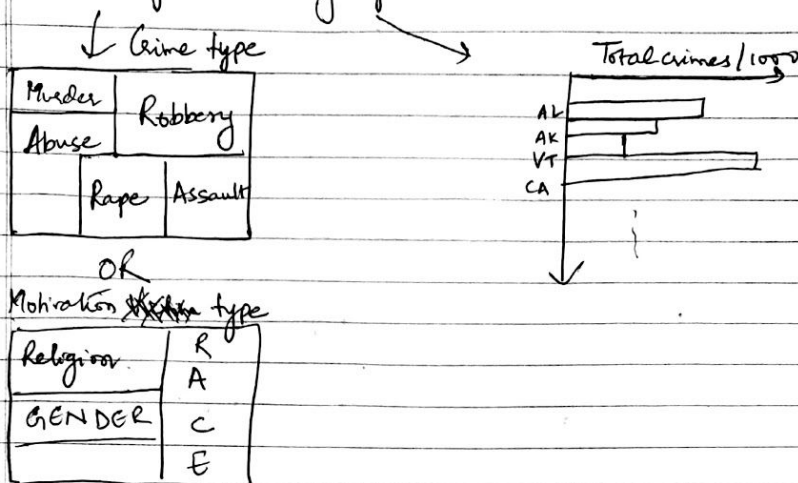 Crime type
Murder
Robbery
Abuse
Rape
Assault
OR
Motivation type
Religion
R
A
C
E
GENDER
Total crimes/1000
AL
AK
VT
CA